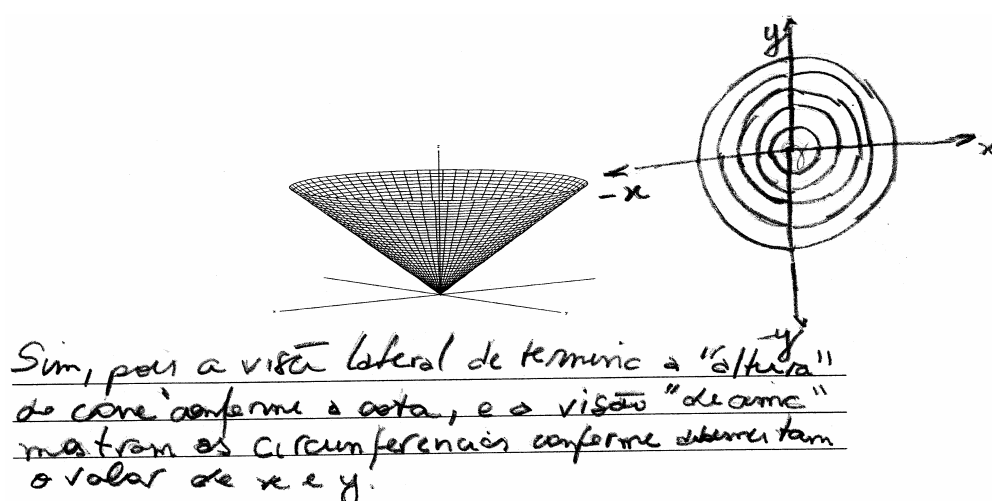 y
x
-x
-y
Sim, pois a visão lateral determina a "altura"
do cone conforme a cota, e a visão "de cima"
mostram as circunferências conforme aumentam
o valor de x e y.